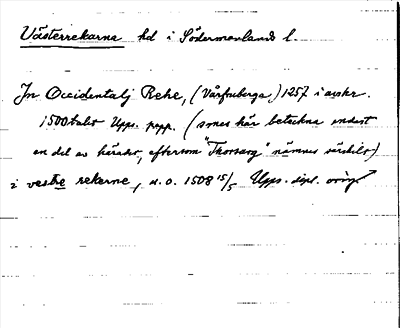 Västerrekarne hd i Södermanlands l.
Jn Occidentalj Rehe, (Vårfruberga) 1257 i avskr.
1500 talet Upps. papp. (synes här beteckna endast
en del av häradet, eftersom "Thorsarg" nämnes särskilt)
i vestre rekerne, u.o. 1508 15/5 Upps. dipl. orig.